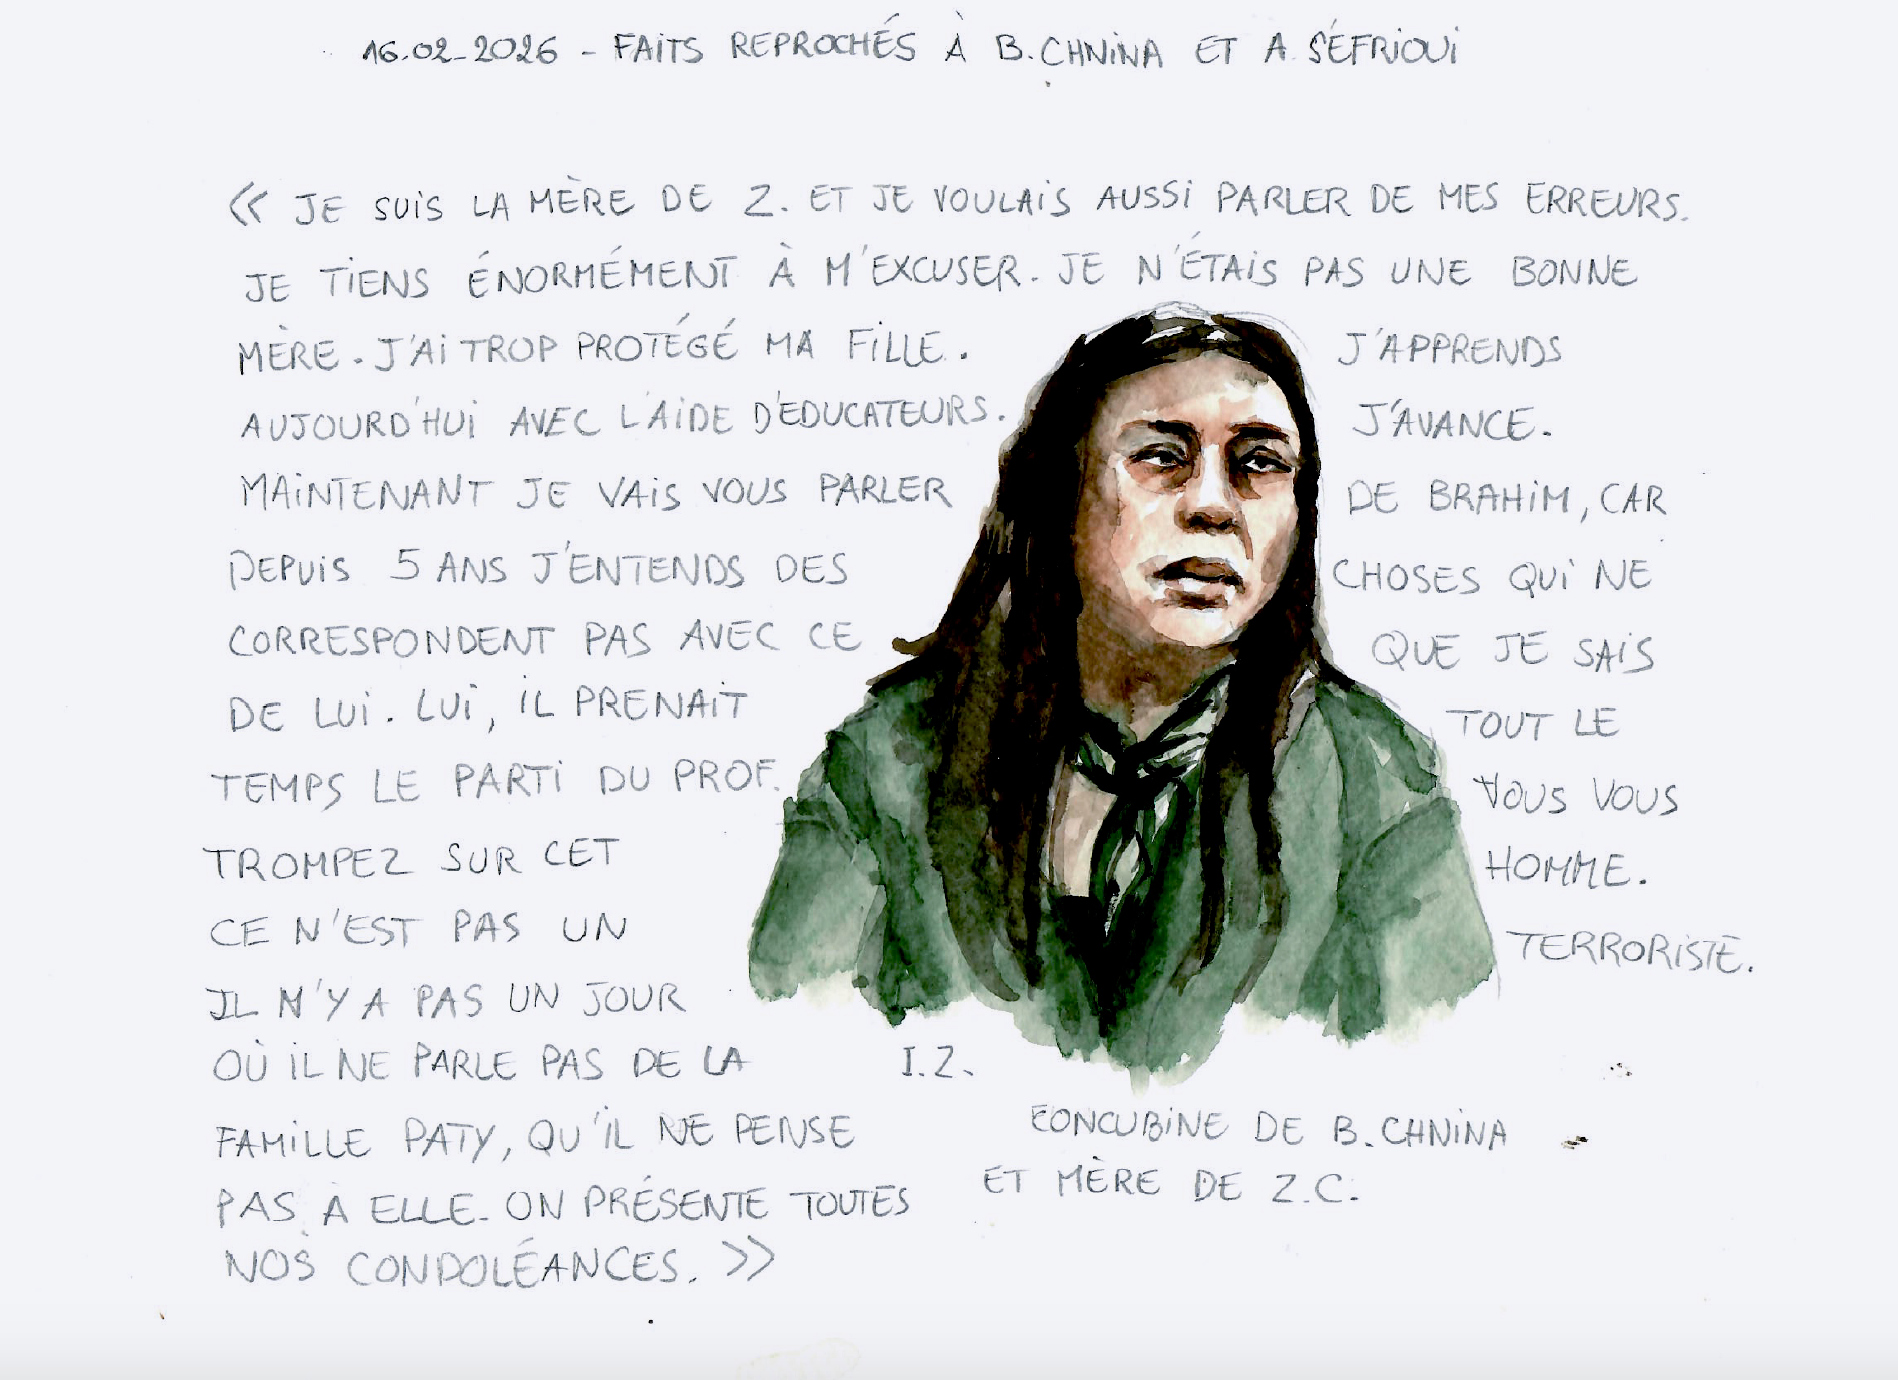 16.02_2026 - FAITS REPROCHÉS À B.CHNINA ET A SÉFRIOUI
« JE SUIS LA MÈRE DE Z. ET JE VOULAIS AUSSI PARLER DE MES ERREURS.
JE TIENS ÉNORMÉMENT À M'EXCUSER. JE N'ÉTAIS PAS UNE BONNE
MÈRE. J'AI TROP PROTÉGÉ MA FILLE. J'APPRENDS
AUJOURD'HUI AVEC L'AIDE D'EDUCATEURS. J'AVANCE.
MAINTENANT JE VAIS VOUS PARLER DE BRAHIM, CAR
DEPUIS 5 ANS J'ENTENDS DES CHOSES QUI NE
CORRESPONDENT PAS AVEC CE QUE JE SAIS
DE LUI. LUI, IL PRENAIT TOUT LE
TEMPS LE PARTI DU PROF. VOUS VOUS
TROMPEZ SUR CET HOMME.
CE N'EST PAS UN TERRORISTE.
IL N'Y A PAS UN JOUR
OÙ IL NE PARLE PAS DE LA
FAMILLE PATY, QU'IL NE PENSE
PAS À ELLE. ON PRÉSENTE TOUTES
NOS CONDOLÉANCES. »
I.Z.
CONCUBINE DE B.CHNINA
ET MÈRE DE Z.C.